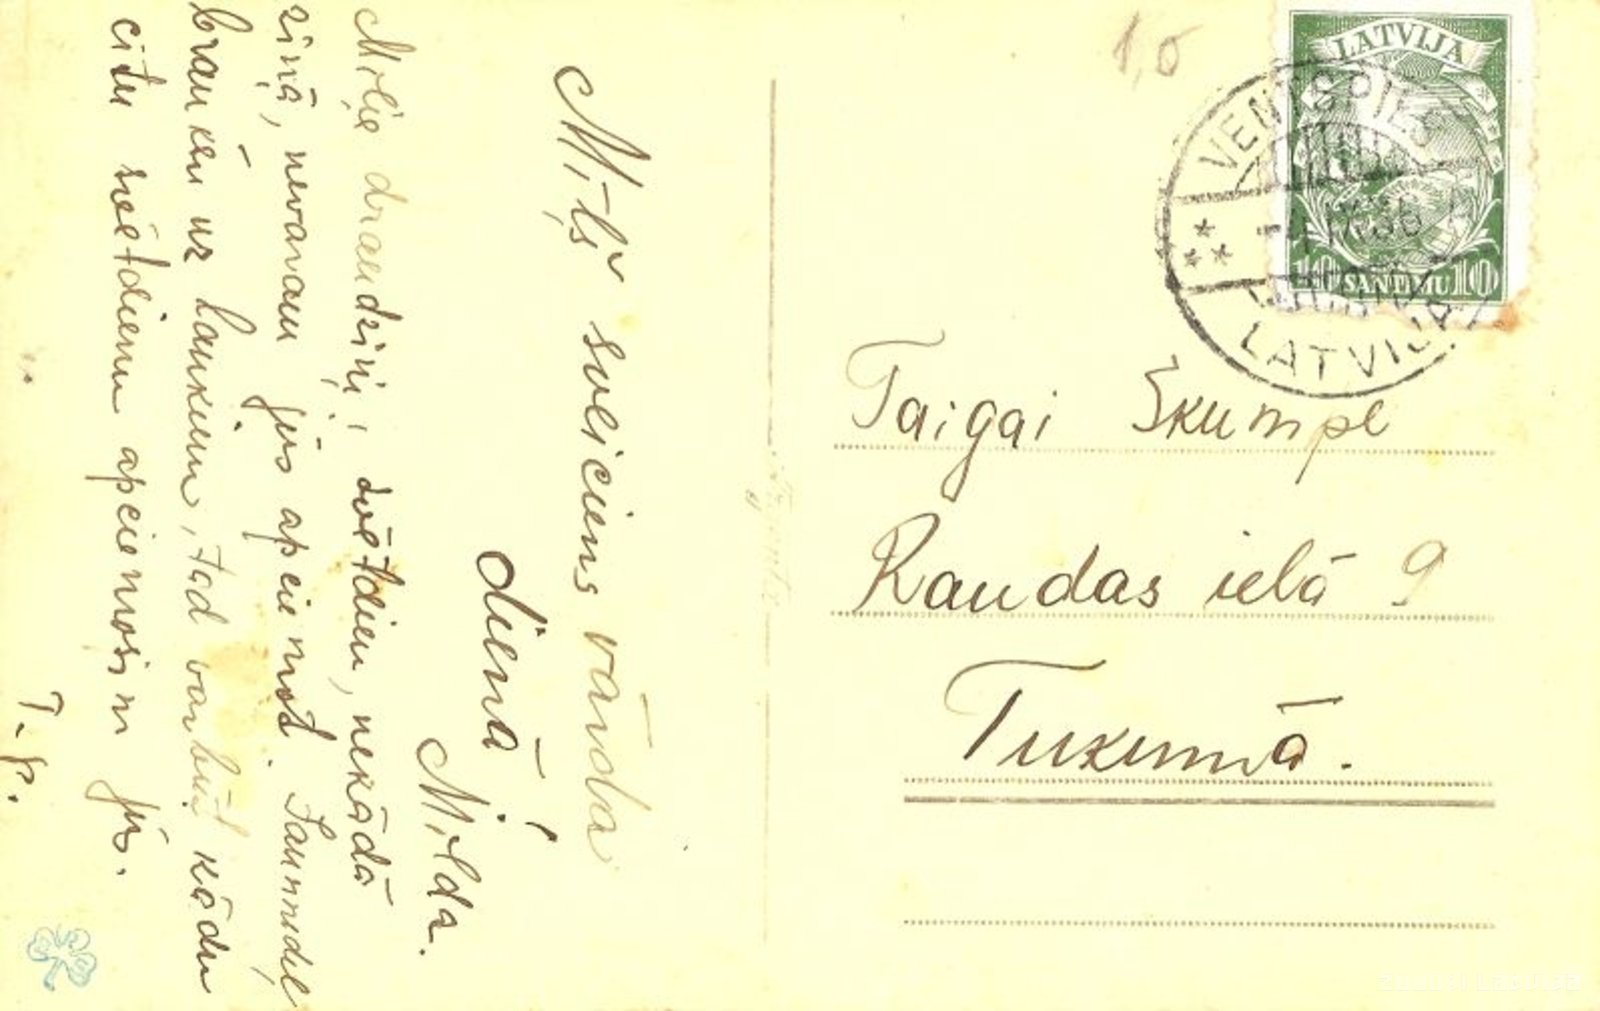 Mīļš sveiciens vārda
dienā!
Milda.
Mīļie draudziņi, svētdien, nekādā
ziņā, nevaram jūs apciemot.
braukēu uz laukiem, tad varbūt kādu
citu svētdienu apciemosim jūs.
T. p.
1,0
LATVIJA
10 SANTIMU 10
VENTSPILS
-4 IX 36
LATVIJA
Taigai Škumpe
Raudas ielā 9
Tukumā.